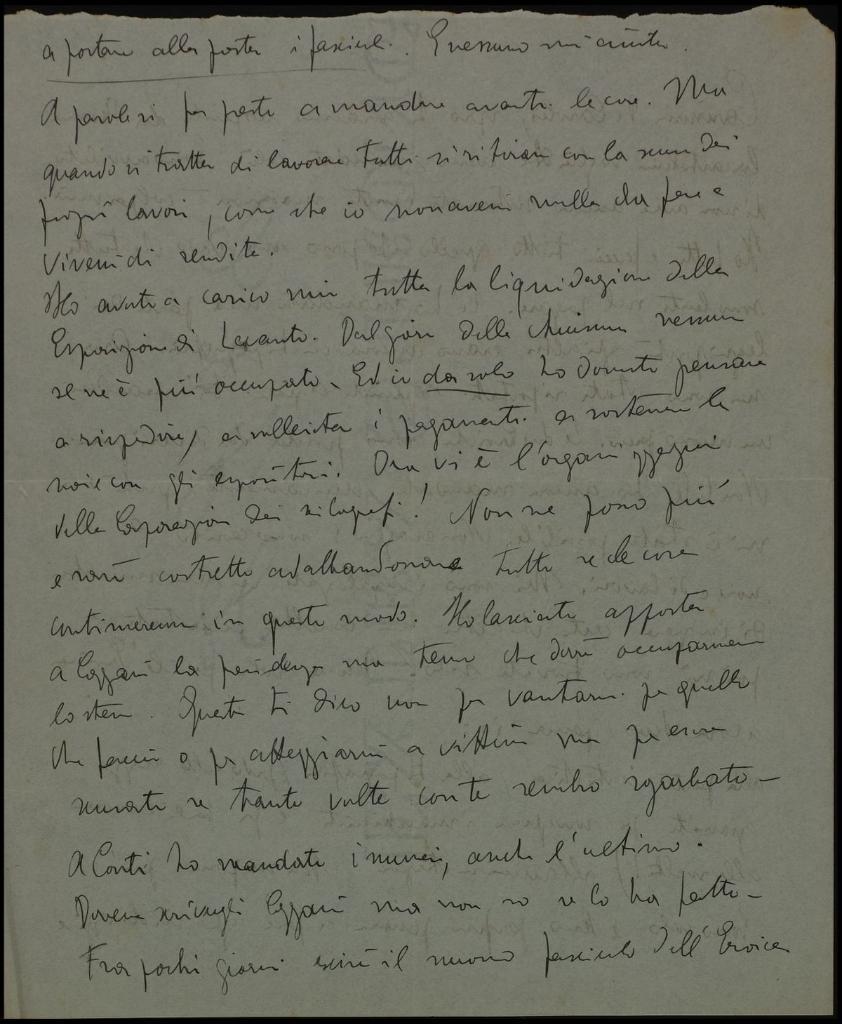 a portare alla posta i fascicoli. E nessuno mi aiuta.
A parole si fa presto a mandare avanti le cose. Ma
quando si tratta di lavorare tutti si ritirano con la scusa dei
propri lavori, come che io non avessi nulla da fare e
vivessi di rendite.
Ho avuto a carico mio tutta la liquidazione della
Esposizione di Levanto. Dal giorno della chiusura nessuno
se ne è più occupato. Ed io da solo ho dovuto pensare
a rispedire, a sollecitare i pagamenti a sostenere le
noie con gli espositori. Ora vi è l'organizzazione
della Corporazione dei xilografi! Non ne posso più
e sarò costretto ad abbandonare tutto se le cose
continueranno in questo modo. Ho lasciato apposta
a Cozzani la presidenza ma temo che dovrò occuparmene
lo stesso. Questo ti dico non per vantarmi per quello
che faccio o per atteggiarmi a vittima ma per essere
scusato se tante volte con te sembro sgarbato –
A Conti ho mandato i numeri, anche l'ultimo.
Doveva scrivergli Cozzani ma non so se lo ha fatto –
Fra pochi giorni uscirà il nuovo fascicolo dell'Eroica